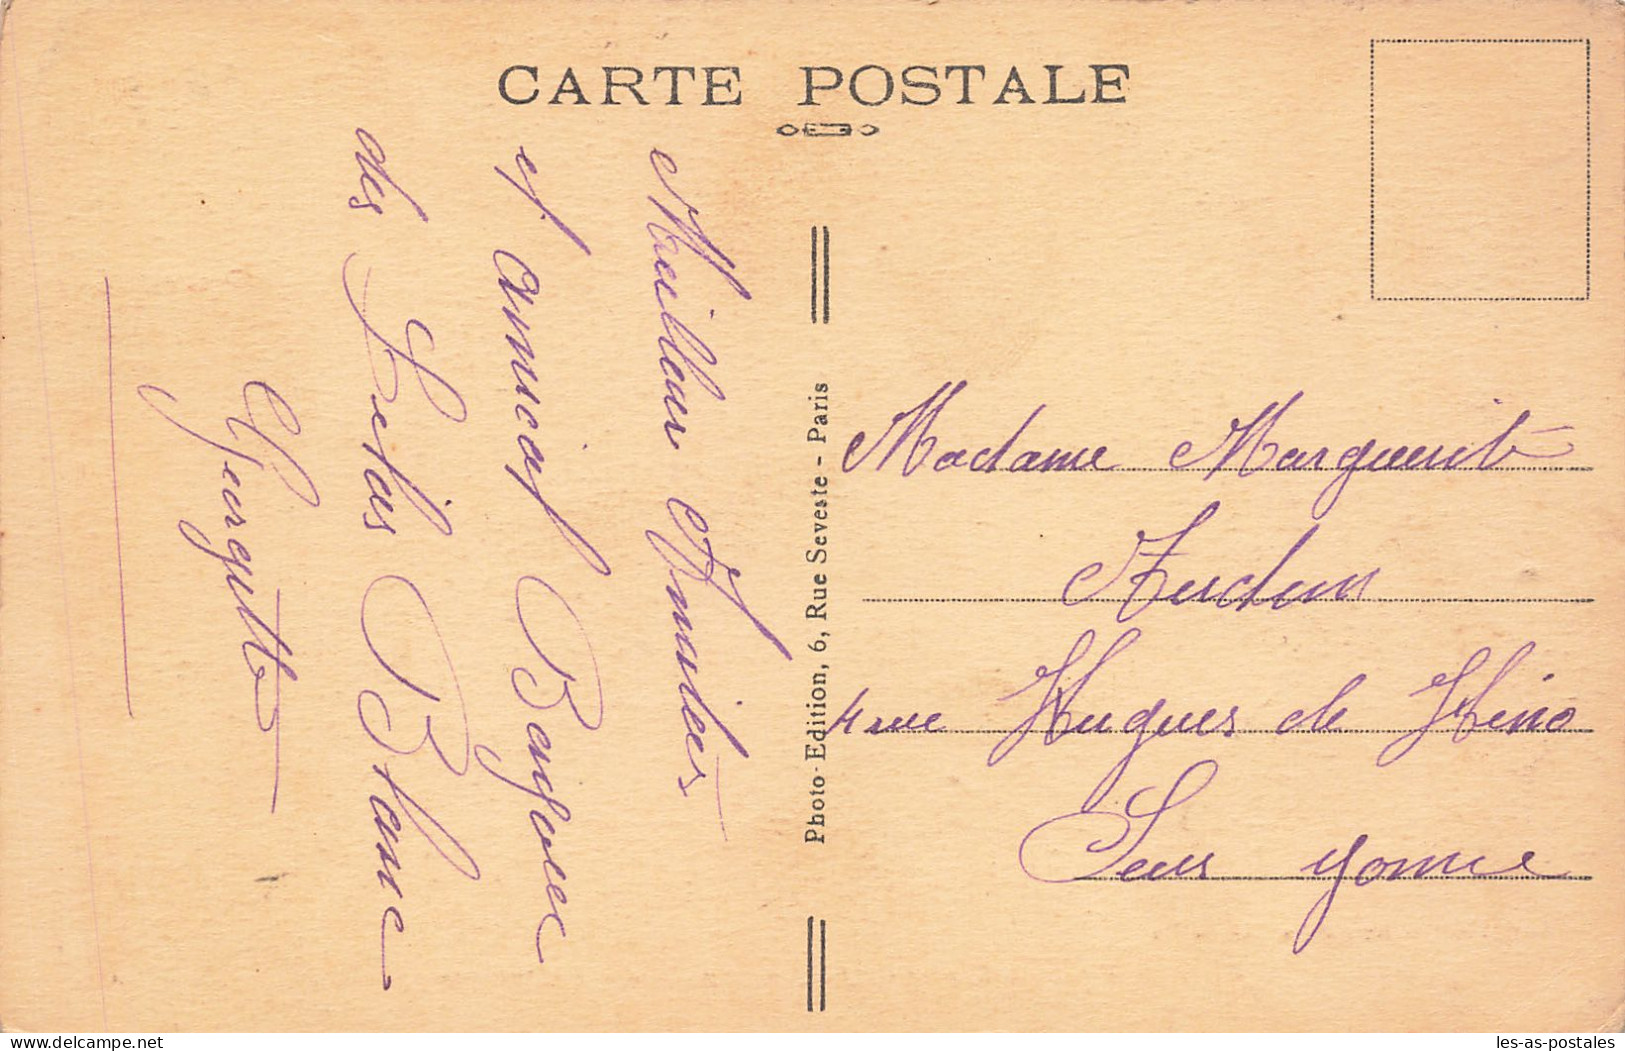 CARTE POSTALE
Meilleur Amitiés
et amical Bonjour
des Blanc
Georgette
Photo-Edition, 6, Rue Seveste - Paris
Madame Marguerite
4 rue Hugues de
Sens Yonne
delcampe.net
les-as-postales